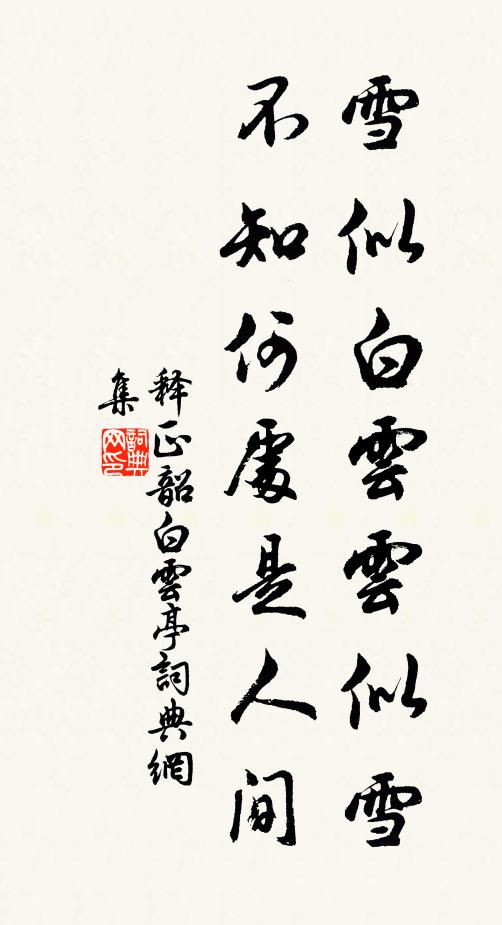 雪似白雲雲似雪
不知何處是人間
释正韶白雲亭詞典網
集
詞典网印